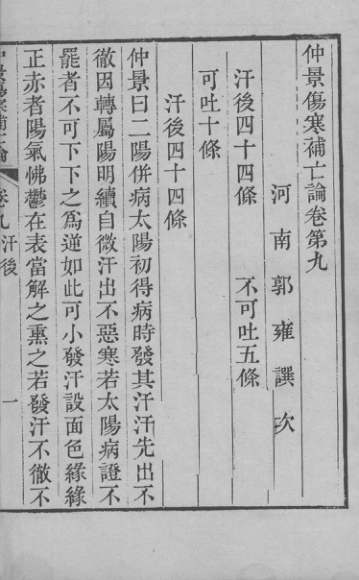 仲景傷寒補亡論卷第九
河南郭雍譔次
汗後四十四條　不可吐五條
可吐十條
汗後四十四條
仲景曰二陽併病太陽初得病時發其汗汗先出不
徹因轉屬陽明續自微汗出不惡寒若太陽病證不
罷者不可下下之爲逆如此可小發汗設面色緣緣
正赤者陽氣怫鬱在表當解之熏之若發汗不徹不
卷九 汗後
一